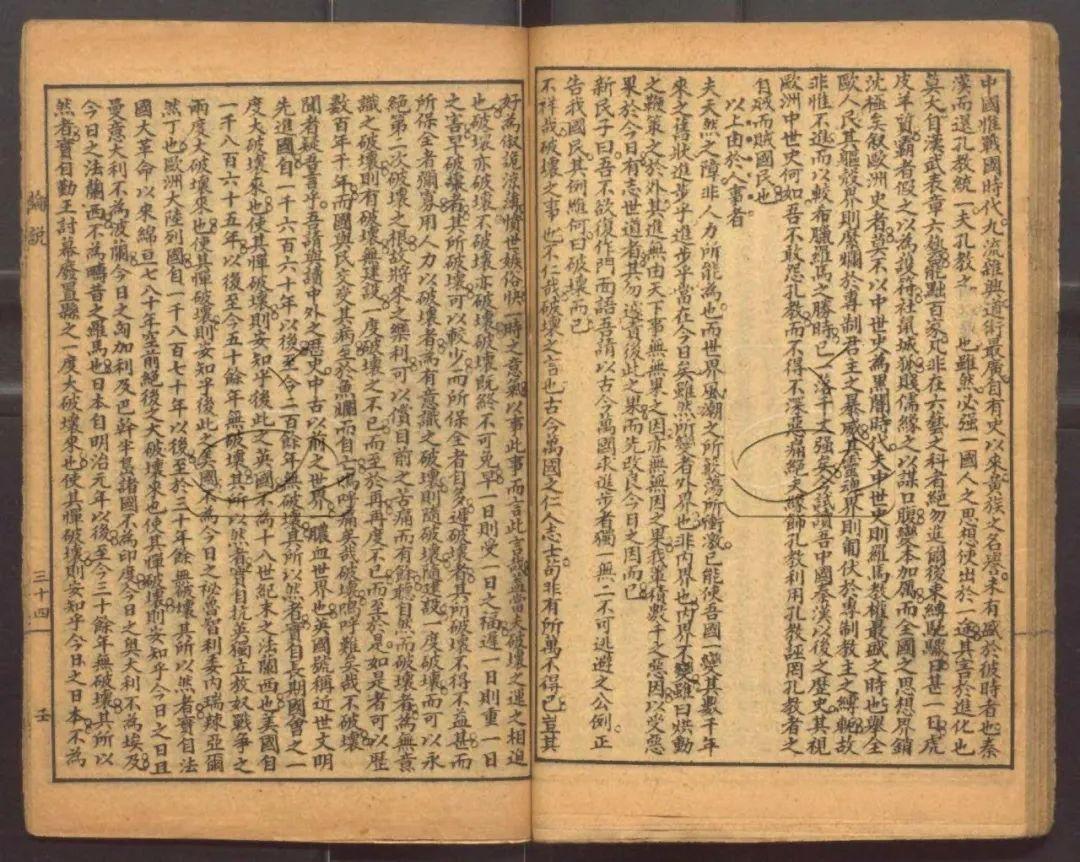 中國惟戰國時代九流雜興道術最廣自有史以來黃族之名譽未有盛於彼時者也秦
漢而還孔教統一夫孔教之也雖然必強一國人之思想使出於一途其害於進化也
莫大自漢武表章六藝罷黜百家凡非在六藝之科者絕勿進爾後束縛馳驟日甚一日虎
皮羊質霸者假之以為護符社鼠城狐賤儒緣之以謀口腹變本加厲而全國之思想界銷
沈極矣敘歐洲史者莫不以中世史為黑闇時代夫中世史則羅馬教權最盛之時也舉全
歐人民其軀殼界則糜爛於專制君主之暴威其靈魂界則匍伏於專制教主之縛軛故
非惟不進而以較希臘羅馬之盛時已一落千丈強矣今試讀吾中國秦漢以後之歷史其視
歐洲中世史何如吾不敢怨孔教而不得不深惡痛絕夫緣飾孔教利用孔教誣罔孔教者之
自賊而賊國民也
以上由於人事者
夫天然之障非人力所能為也而世界風潮之所簸蕩所衝激已能使吾國一變其數千年
來之舊狀進步乎進步乎當在今日矣雖然所變者外界也非內界也內界不變雖曰烘動
之鞭策之於外其進無由天下事無無果之因亦無無因之果我輩積數千之惡因以受惡
果於今日有志世道者其勿遽責後此之果而先改良今日之因而已
新民子曰吾不欲復作門面語吾請以古今萬國求進步者獨一無二不可逃避之公例正
告我國民其例維何曰破壞而已
不祥哉破壞之事也不仁哉破壞之言也古今萬國之仁人志士苟非有所萬不得已豈其
好為俶詭涼薄憤世嫉俗快一時之意氣以事此事而言此言哉蓋當夫破壞之運之相迫
也破壞亦破壞不破壞亦破壞破壞既終不可免早一日則受一日之福遲一日則重一日
之害早破壞者其所破壞可以較少而所保全者自多遲破壞者其所破壞不得不益甚而
所保全者彌寡用人力以破壞者為有意識之破壞則隨破壞隨建設一度破壞而可以永
絕第二次破壞之根故將來之樂利可以償目前之苦痛而有餘聽自然而破壞者為無意
識之破壞則有破壞無建設一度破壞之不已而至於再再度不已而至於是如是者可以歷
數百年千年而國與民交受其病至於魚爛而自亡嗚呼痛矣哉破壞嗚呼難矣哉不破壞
聞者疑吾言乎吾請與讀中外之歷史中古以前之世界一膿血世界也英國號稱近世文明
先進國自一千六百六十年以後至今二百餘年無破壞其所以然者實自長期國會之一
度大破壞來也使其憚破壞則安知乎後此之英國不為十八世紀末之法蘭西也美國自
一千八百六十五年以後至今五十餘年無破壞其所以然者實自抗英獨立放奴戰爭之
兩度大破壞來也使其憚破壞則安知乎後此之美國不為今日之祕魯智利委內瑞辣亞爾
然丁也歐洲大陸列國自一千八百七十年以後至於三十年餘無破壞其所以然者實自法
國大革命以來綿亘七八十年空前絕後之大破壞來也使其憚破壞則安知乎今日之日且
曼意大利不為波蘭今日之匈加利及巴幹半舊諸國不為印度今日之奧大利不為埃及
今日之法蘭西不為疇昔之羅馬也日本自明治元年以後至今三十餘年無破壞其所以
然者實自勤王討幕廢置縣之一度大破壞來也使其憚破壞則安知乎今日之日本不為
論說
三十四
壬